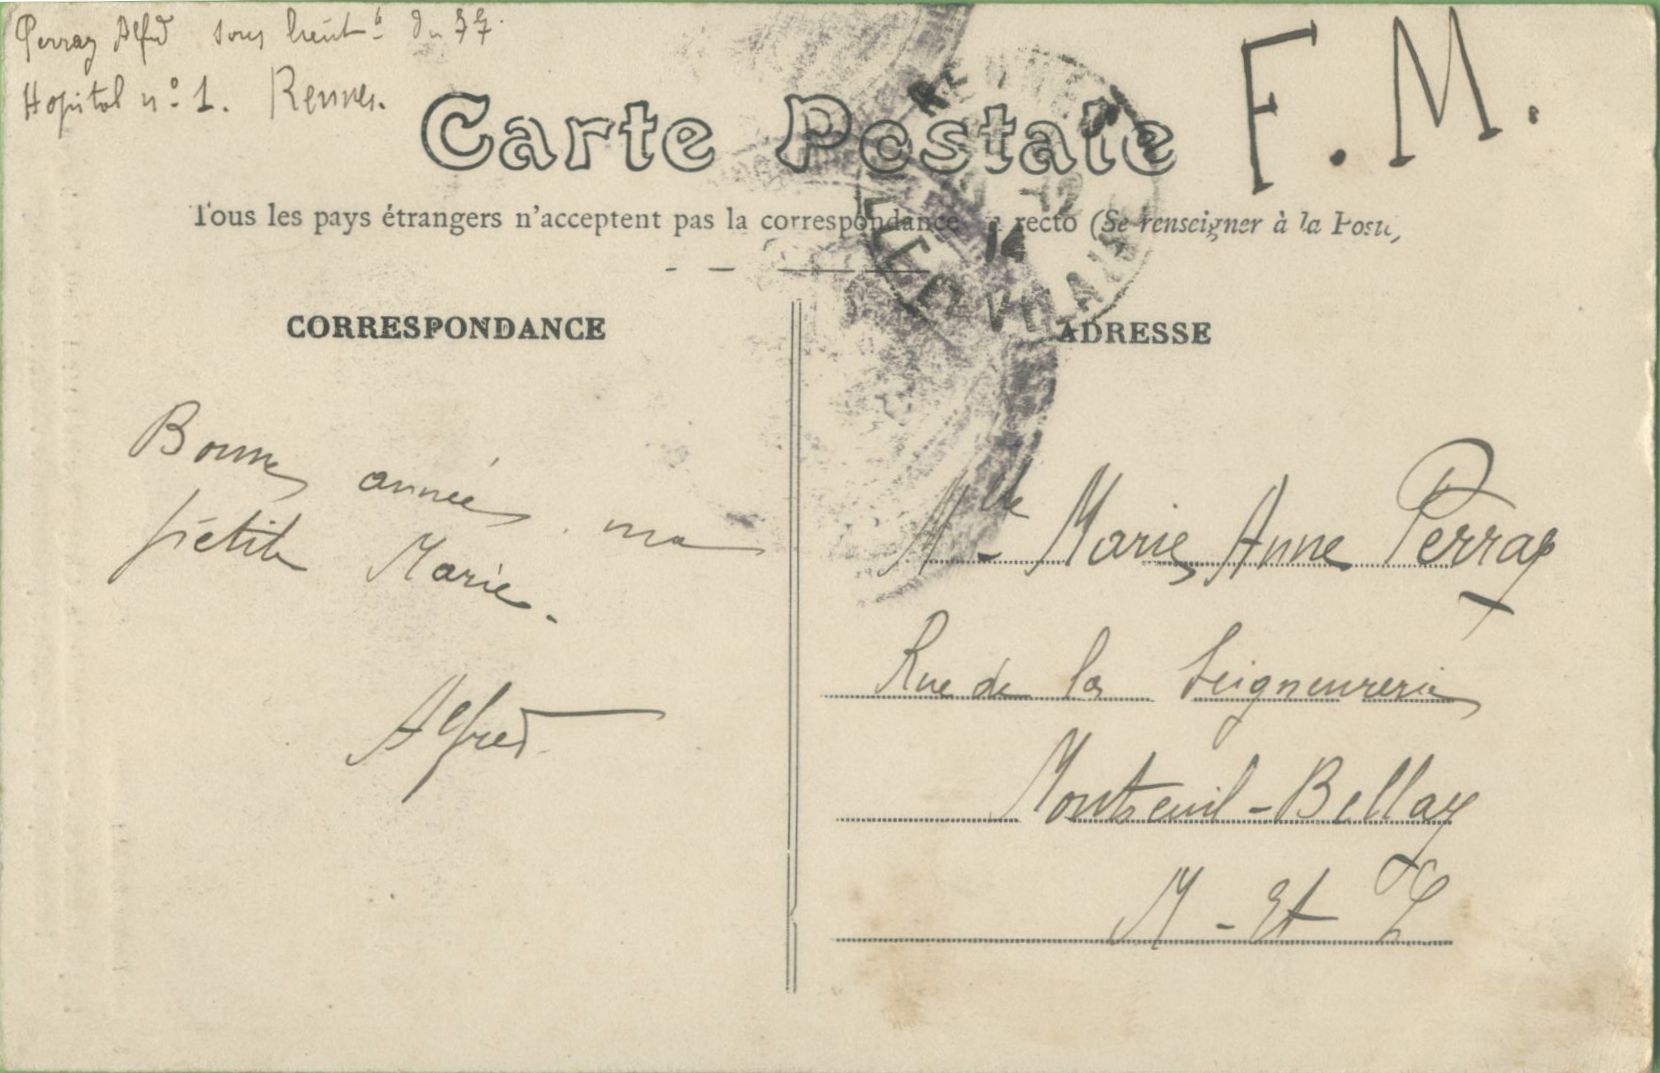 Perray Alfred sous lieut^t du 77.
Hopital n° 1. Rennes.
F. M.
Carte Postale
Tous les pays étrangers n'acceptent pas la correspondance recto (Se renseigner à la Poste)
RENNES
12
14
ILLE ET VILAINE
CORRESPONDANCE
ADRESSE
Bonne année ma
petite Marie.
Alfred
M^lle Marie Anne Perray
Rue de la Seigneurerie
Montreuil-Bellay
M-et L